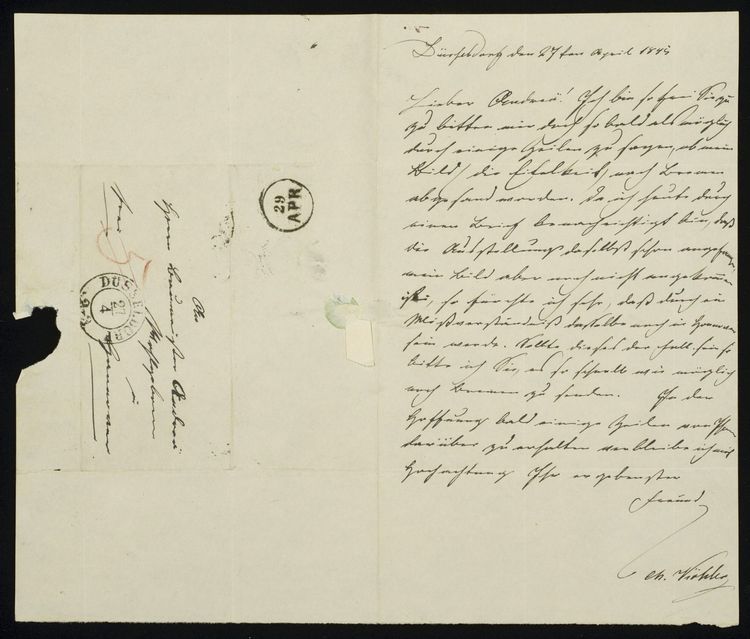 Düsseldorf den 27ten April 1843
Lieber Andreä! Ich bin so frei Sie
zu bitten mir doch so bald als möglich
durch einige Zeilen zu sagen, ob mein
Bild (die Eitelkeit) nach Bremen
abgesandt worden. Da ich heute durch
einen Brief benachrichtigt bin, daß
die Ausstellung daselbst schon angefangen,
mein Bild aber noch nicht angekommen
ist, so fürchte ich sehr, daß durch ein
Mißverständniß dasselbe noch in Hannover
sein werde. Sollte dieses der Fall sein so
bitte ich Sie, es so schnell wie möglich
nach Bremen zu senden. In der
Hoffnung bald einige Zeilen von Ihnen
darüber zu erhalten verbleibe ich mit
Hochachtung Ihr ergebenster
Freund
Ch. Köhler
An
Herrn Baumeister Andreä
Wohlgeboren
in
Hannover
frei
5
DUSSELDORF
27
4
29
APR